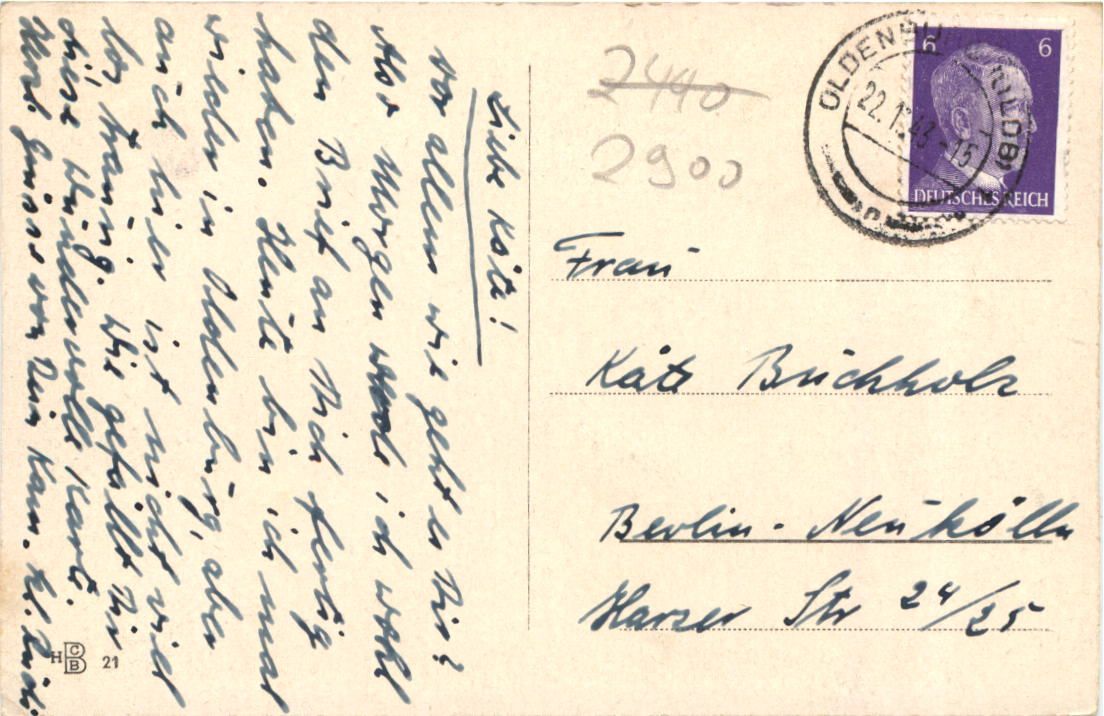 Liebe Käte!
vor allem wie geht es Dir?
Also Morgen werde ich wohl
den Brief an Dich fertig
haben. Heute bin ich mal
wieder in Oldenburg, aber
auch hier ist nicht viel
los, traurig. Wie gefällt Dir
diese wundervolle Karte.
Herzl. Grüsse von Dein Kam.
2440
2900
OLDENBURG (OLDB)
22.1 43 -15
6 6
DEUTSCHES REICH
Frau
Käte Buchholz
Berlin-Neukölln
Harzer Str 24/25
H CBB 21